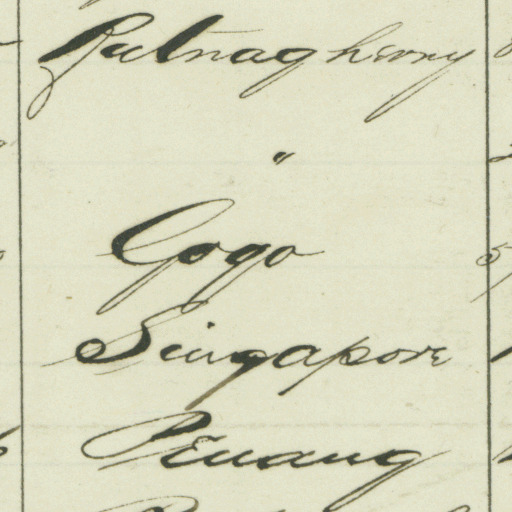 Rutnagherry
"
Gogo
Singapore
Penang